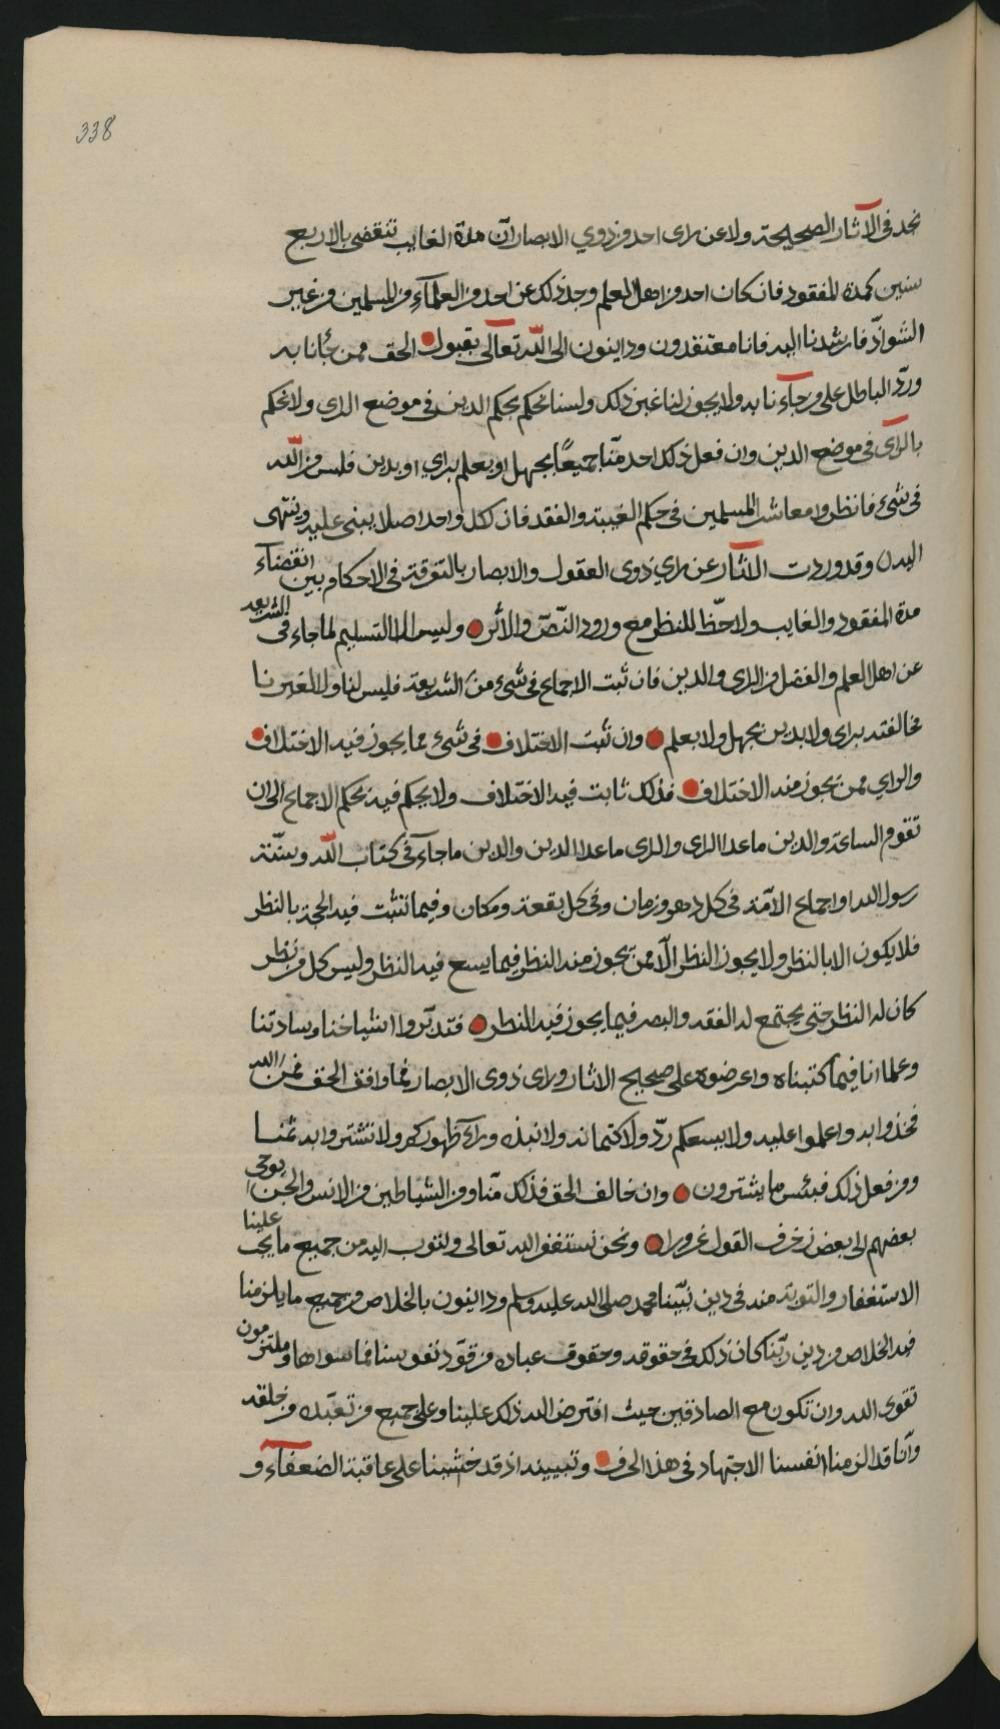 338
نجد في الآثار الصحيحة ولا عن راى احد من ذوي الابصار ان مدة الغايب تنقضى بالاربع
سنين كمدة المفقود فان كان احد من اهل العلم وجد ذلك عن احد من العلمآء من المسلمين من غير
الشواذّ فارشدنا اليه فانا معتقدون وداينون الى اللّه تعالى بقبول الحق ممن جأنا به
وردّ الباطل على من جآءنا به ولا يجوز لنا غير ذلك ولسنا نحكم بحكم الدين في موضع الراى ولا نحكم
بالراى في موضع الدين وان فعل ذلك احد منّا جميعًا بجهل او بعلم براي او بدين فليس من اللّه
في شىء فانظروا معاشر المسلمين في حكم الغيبة والفقد فان لكل واحد اصلا يبنى عليه وينتهى
اليه وقد وردت الآثار عن راي ذوى العقول والابصار بالتفرقة في الاحكام بين انقضآء
مدة المفقود والغايب ولا حظّ للنظر مع ورود النصّ والأثر وليس الا التسليم لما جاء في الشريعة
عن اهل العلم والفضل من الراى والدين فان ثبت الاجماع في شىء من الشريعة فليس لنا ولا لغيرنا
مخالفته براى ولا بدين بجهل ولا بعلم وان ثبت الاختلاف في شىء مما يجوز فيه الاختلاف
والراي ممن يجوز منه الاختلاف فذلك ثابت فيه الاختلاف ولا يحكم فيه بحكم الاجماع الى ان
تقوم الساعة والدين ما عدا الراى والراى ما عدا الدين والدين ما جآء في كتاب اللّه وسنّة
رسول الله او اجماع الامّة في كل دهر وزمان وفي كل بقعة ومكان وفيما تثبت فيه الحجة بالنظر
فلا يكون الا بالنظر ولا يجوز النظر الّا ممن يجوز منه النظر فيما يسع فيه النظر وليس كل من نظر
كان له النظر حتى يجتمع له الفقه والبصر فيما يجوز فيه النظر فتدبّروا اشياخنا وسادتنا
وعلمانا فيما كتبناه واعرضوه على صحيح الاثار وراى ذوى الابصار فما وافق الحق فمن الله
فخذوا به واعملوا عليه ولا يسعكم ردّه ولا كتمانه ولا نبذه ورآء ظهوركم ولا تشتروا به ثمنـا
ومن فعل ذلك فبئس ما يشترون وان خالف الحق فذلك منّا ومن الشياطين من الانس والجن يوحى
بعضهم الى بعض زخرف القول غرورا ونحن نستغفر الله تعالى ونتوب اليه من جميع ما يجب علينا
الاستغفار والتوبة منه في دين نبيّنا محمد صلى الله عليه وسلم وداينون بالخلاص من جميع ما يلزمنا
فيه الخلاص من دين ربّنا كان ذلك في حقوقه وحقوق عباده من قوّد نفوسنا فما سواها وملتزمون
تقوى الله وان نكون مع الصادقين حيث افترض الله ذلك علينا وعلى جميع من تعبّده من خلقه
وانّا قد الزمنا انفسنا الاجتهاد في هذا الحرف وتبيينه اذ قد خشينا على عاقبة الضعفآء و